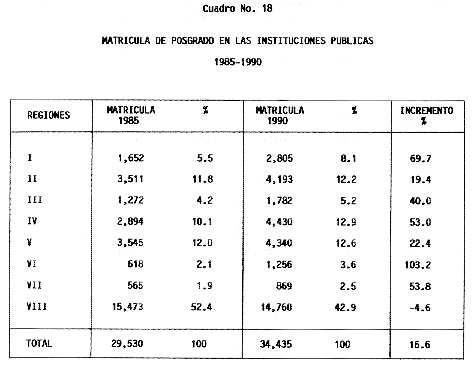 Cuadro No. 18
MATRICULA DE POSGRADO EN LAS INSTITUCIONES PUBLICAS
1985-1990
REGIONES MATRICULA 1985 % MATRICULA 1990 % INCREMENTO %
I 1,652 5.5 2,805 8.1 69.7
II 3,511 11.8 4,193 12.2 19.4
III 1,272 4.2 1,782 5.2 40.0
IV 2,894 10.1 4,430 12.9 53.0
V 3,545 12.0 4,340 12.6 22.4
VI 618 2.1 1,256 3.6 103.2
VII 565 1.9 869 2.5 53.8
VIII 15,473 52.4 14,760 42.9 -4.6
TOTAL 29,530 100 34,435 100 16.6